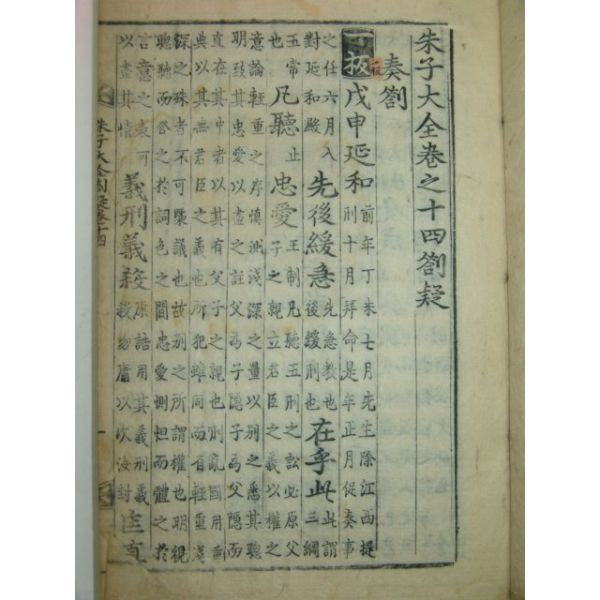 朱子大全卷之十四劄疑
奏劄
戊申延和前年丁未七月先生除江西提
刑十月拜命是年正月促奏事
之任六月入
對延和殿先後緩急先急教也
後緩刑也在乎此此謂
三綱
五常
也凡聽止忠愛王制凡聽五刑之訟必原父
子之親立君臣之義以權之
意論輕重之序慎測淺深之量以別之悉其聰
明致其忠愛以盡之註父爲子隱子爲父隱而
直在其中者以其有父子之親也刑亂國用重
典以其無君臣之義也所犯雖同而有輕重淺
深之殊者不可槩議也故別之所謂權也明視
聰聽而察之於詞色之間忠愛惻怛而體之於
言意之表可
以盡其情義刑義殺康誥用其義刑義
殺勿庸以次汝封匡直
朱子大全劄疑卷十四